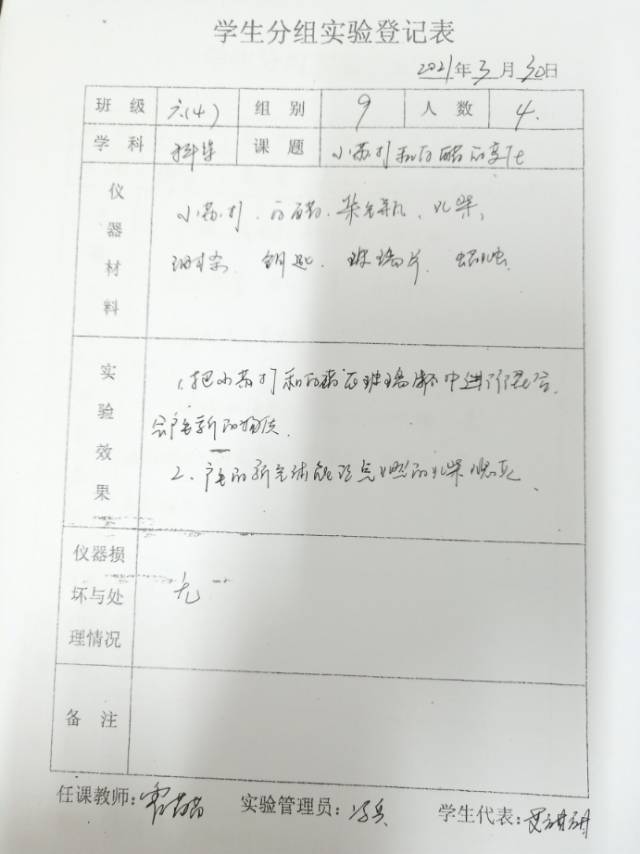 学生分组实验登记表
2021年3月30日
班级 六(4) 组别 9 人数 4.
学科 科学 课题 小苏打和白醋的变化
仪器材料
小苏打、白醋、集气瓶、火柴、
玻璃杯、钥匙、玻璃片、蜡烛
实验效果
1、把小苏打和白醋在玻璃杯中进行混合,
会产生新的物质.
2、产生的新气体能把点燃的火柴熄灭
仪器损坏与处理情况
无
备注
任课教师: 实验管理员: 学生代表: